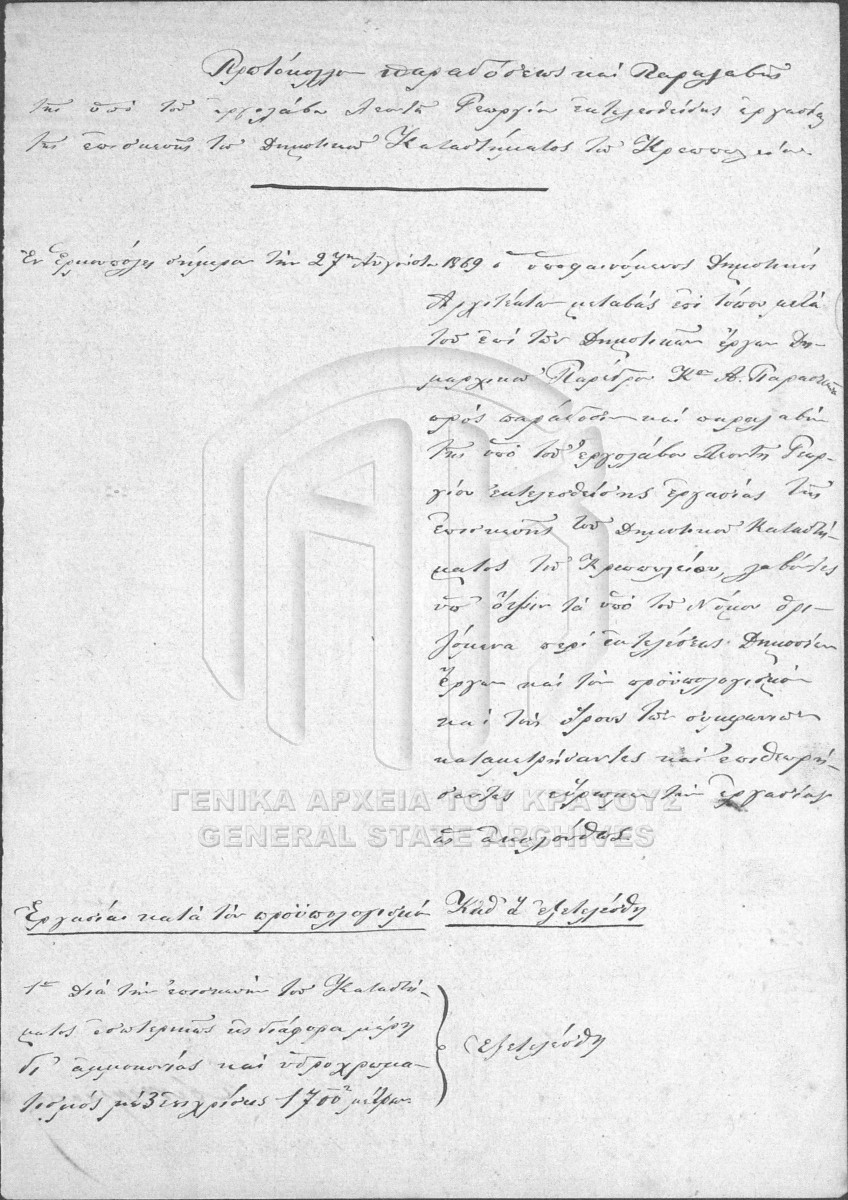 Πρωτόκολλον παραδόσεως καὶ Παραλαβῆς
τῆς ὑπὸ τοῦ ἐργολάβου Λεοντῆ Γεωργίου ἐκτελεσθείσης ἐργασίας
τῆς ἐπισκευῆς τοῦ Δημοτικοῦ Καταστήματος τοῦ
Ἐν Ἑρμουπόλει σήμερον τὴν 27ην Αὐγούστου 1869 ὁ ὑποφαινόμενος Δημοτικὸς
Ἀρχιτέκτων μεταβὰς ἐπὶ τόπου μετὰ
τοῦ ἐπὶ τῶν Δημοτικῶν ἔργων Δη-
μαρχικοῦ Παρέδρου Κου Α.
πρὸς παράδοσιν καὶ παραλαβὴν
τῆς ὑπὸ τοῦ ἐργολάβου Λεοντῆ Γεωρ-
γίου ἐκτελεσθείσης ἐργασίας τῆς
ἐπισκευῆς τοῦ Δημοτικοῦ Καταστή-
ματος τοῦ λαβόντες
ὑπ' ὄψιν τὰ ὑπὸ τοῦ Νόμου ὁρι-
ζόμενα περὶ ἐκτελέσεως Δημοσίων
ἔργων καὶ τὸν προϋπολογισμὸν
καὶ τοὺς ὅρους τῶν συμφωνιῶν
καταμετρήσαντες καὶ ἐπιθεωρή-
σαντες εὕρομεν τὴν ἐργασίαν
ὡς ἀκολούθως
ΓΕΝΙΚΑ ΑΡΧΕΙΑ ΤΟΥ ΚΡΑΤΟΥΣ
GENERAL STATE ARCHIVES
Ἐργασίαι κατὰ τὸν προϋπολογισμὸν Καθ' ἃ ἐξετελέσθη
1ον Διὰ τὴν ἐπισκευὴν τοῦ Καταστή-
ματος ἐσωτερικῶς εἰς διάφορα μέρη
δι' ἀμμοκονίας καὶ ὑδροχρωμα-
τισμὸς μὲ 3 ἐπιχρίσεις 1700 μέτρων
ἐξετελέσθη